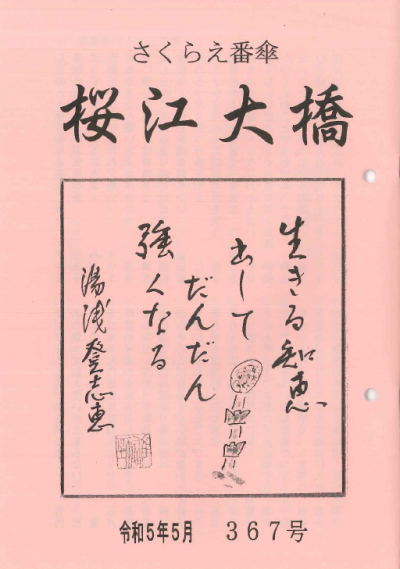 さくらえ番傘
桜江大橋
生きる知恵
出して
だんだん
強くなる
湯浅登志恵
令和5年5月　367号